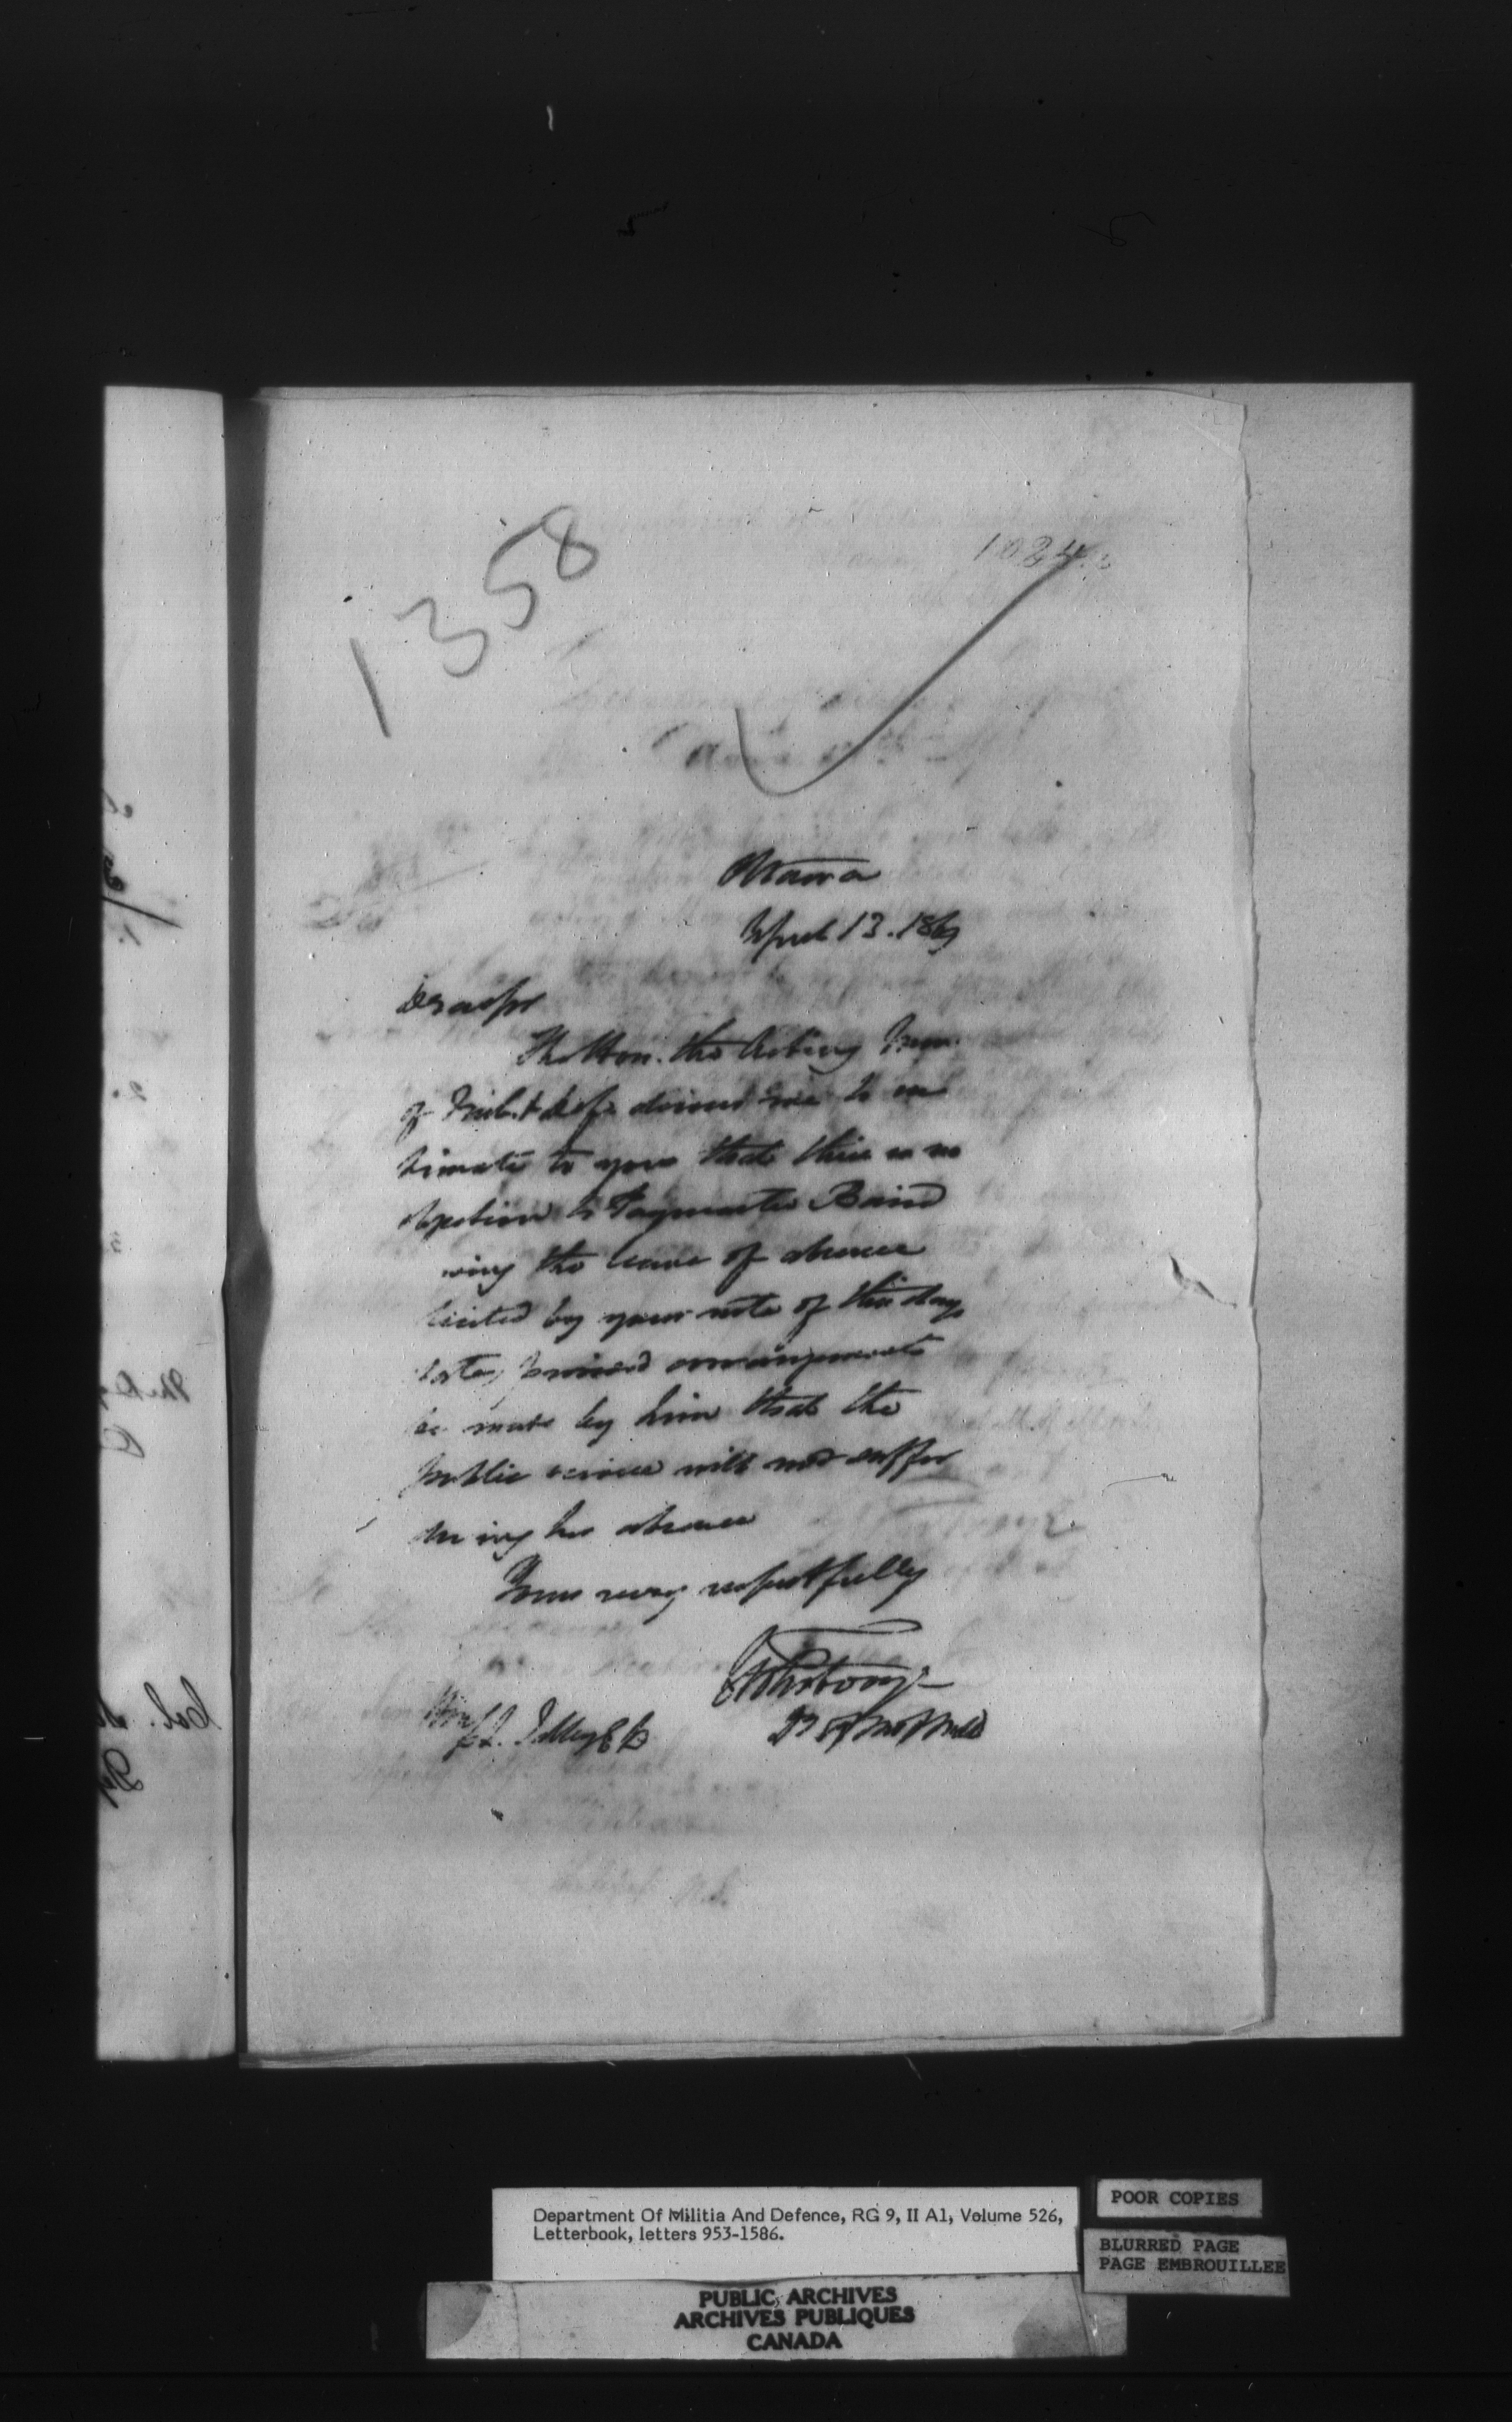 1358
1024
Ottawa
April 13. 1869
Dear Sir
The Hon. the Acting Min.
of Mil. & Def. desires me to in
timate to you that there is no
objection to Paymaster Baird
ing the leave of absence
by your note of this day's
date, provided arrangements
be made by him that the
public service will not suffer
during his absence
Yours very respectfully
Hon
S. L. Tilley C B
Department Of Militia And Defence, RG 9, II A1, Volume 526,
Letterbook, letters 953-1586.
POOR COPIES
BLURRED PAGE
PAGE EMBROUILLEE
PUBLIC ARCHIVES
ARCHIVES PUBLIQUES
CANADA